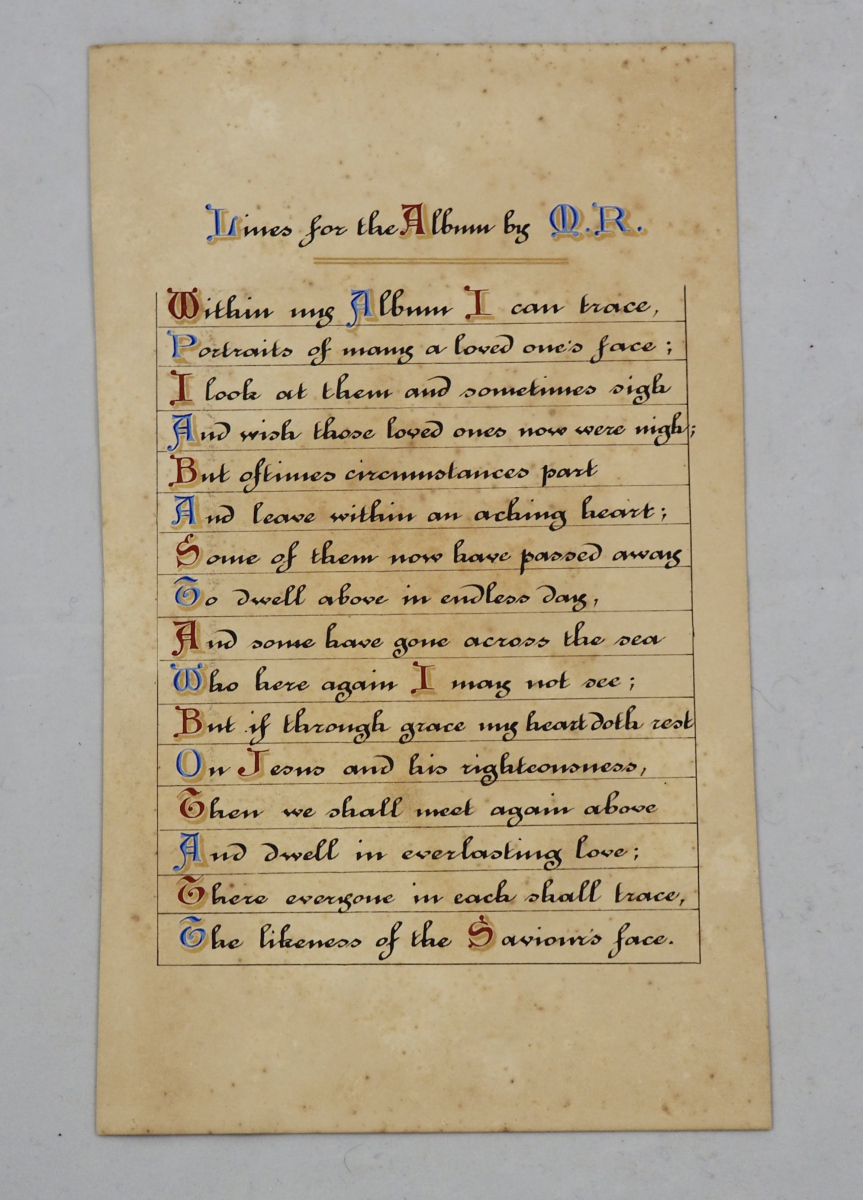 Lines for the Album by M.R.
Within my Album I can trace,
Portraits of many a loved one's face;
I look at them and sometimes sigh
And wish those loved ones now were nigh;
But oftimes circumstances part
And leave within an aching heart;
Some of them now have passed away
To dwell above in endless day,
And some have gone across the sea
Who here again I may not see;
But if through grace my heart doth rest
On Jesus and his righteousness,
Then we shall meet again above
And dwell in everlasting love;
There everyone in each shall trace,
The likeness of the Saviour's face.